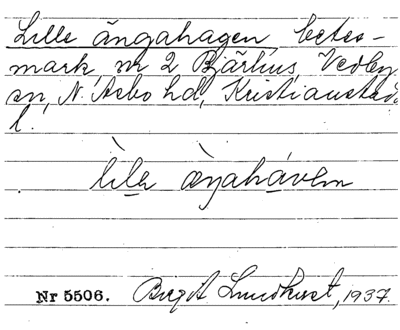 Lille ängahagen betes-
mark nr 2 Bjärlius, Vedby
sn, N. Åsbo hd, Kristianstads
l.
lìlə æ̀ŋahávəm
Nr 5506. Birgit Lundkvist, 1937.